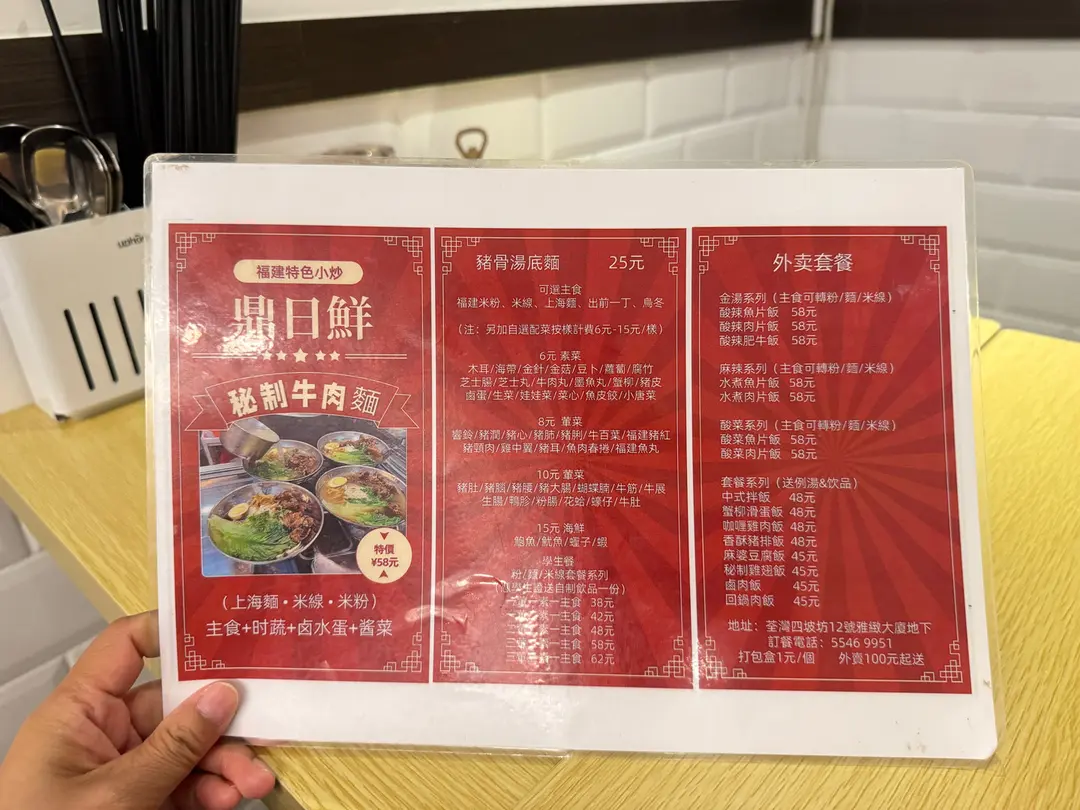 福建特色小炒
鼎日鮮
秘制牛肉麵
特價
¥58元
(上海麵•米線•米粉)
主食+时蔬+卤水蛋+酱菜
豬骨湯底麵 25元
可選主食
福建米粉、米線、上海麵、出前一丁、烏冬
(注：另加自選配菜按樣計費6元-15元/樣)
6元 素菜
木耳/海帶/金針/金菇/豆卜/蘿蔔/腐竹
芝士腸/芝士丸/牛肉丸/墨魚丸/蟹柳/豬皮
鹵蛋/生菜/娃娃菜/菜心/魚皮餃/小唐菜
8元 葷菜
響鈴/豬潤/豬心/豬肺/豬脷/牛百葉/福建豬紅
豬頸肉/雞中翼/豬耳/魚肉春捲/福建魚丸
10元 葷菜
豬肚/豬腦/豬腰/豬大腸/蝴蝶腩/牛筋/牛展
生腸/鴨胗/粉腸/花蛤/蠔仔/牛肚
15元 海鮮
鮑魚/魷魚/蟶子/蝦
學生餐
粉/麵/米線套餐系列
學生證送自制飲品一份)
一素一主食 38元
素一主食 42元
素一主食 48元
一主食 58元
一主食 62元
外卖套餐
金湯系列(主食可轉粉/麵/米線)
酸辣魚片飯 58元
酸辣肉片飯 58元
酸辣肥牛飯 58元
麻辣系列(主食可轉粉/麵/米線)
水煮魚片飯 58元
水煮肉片飯 58元
酸菜系列(主食可轉粉/麵/米線)
酸菜魚片飯 58元
酸菜肉片飯 58元
套餐系列(送例湯&饮品)
中式拌飯 48元
蟹柳滑蛋飯 48元
咖喱雞肉飯 48元
香酥豬排飯 48元
麻婆豆腐飯 45元
秘制雞翅飯 45元
鹵肉飯 45元
回鍋肉飯 45元
地址：荃灣四坡坊12號雅緻大廈地下
訂餐電話：5546 9951
打包盒1元/個 外賣100元起送